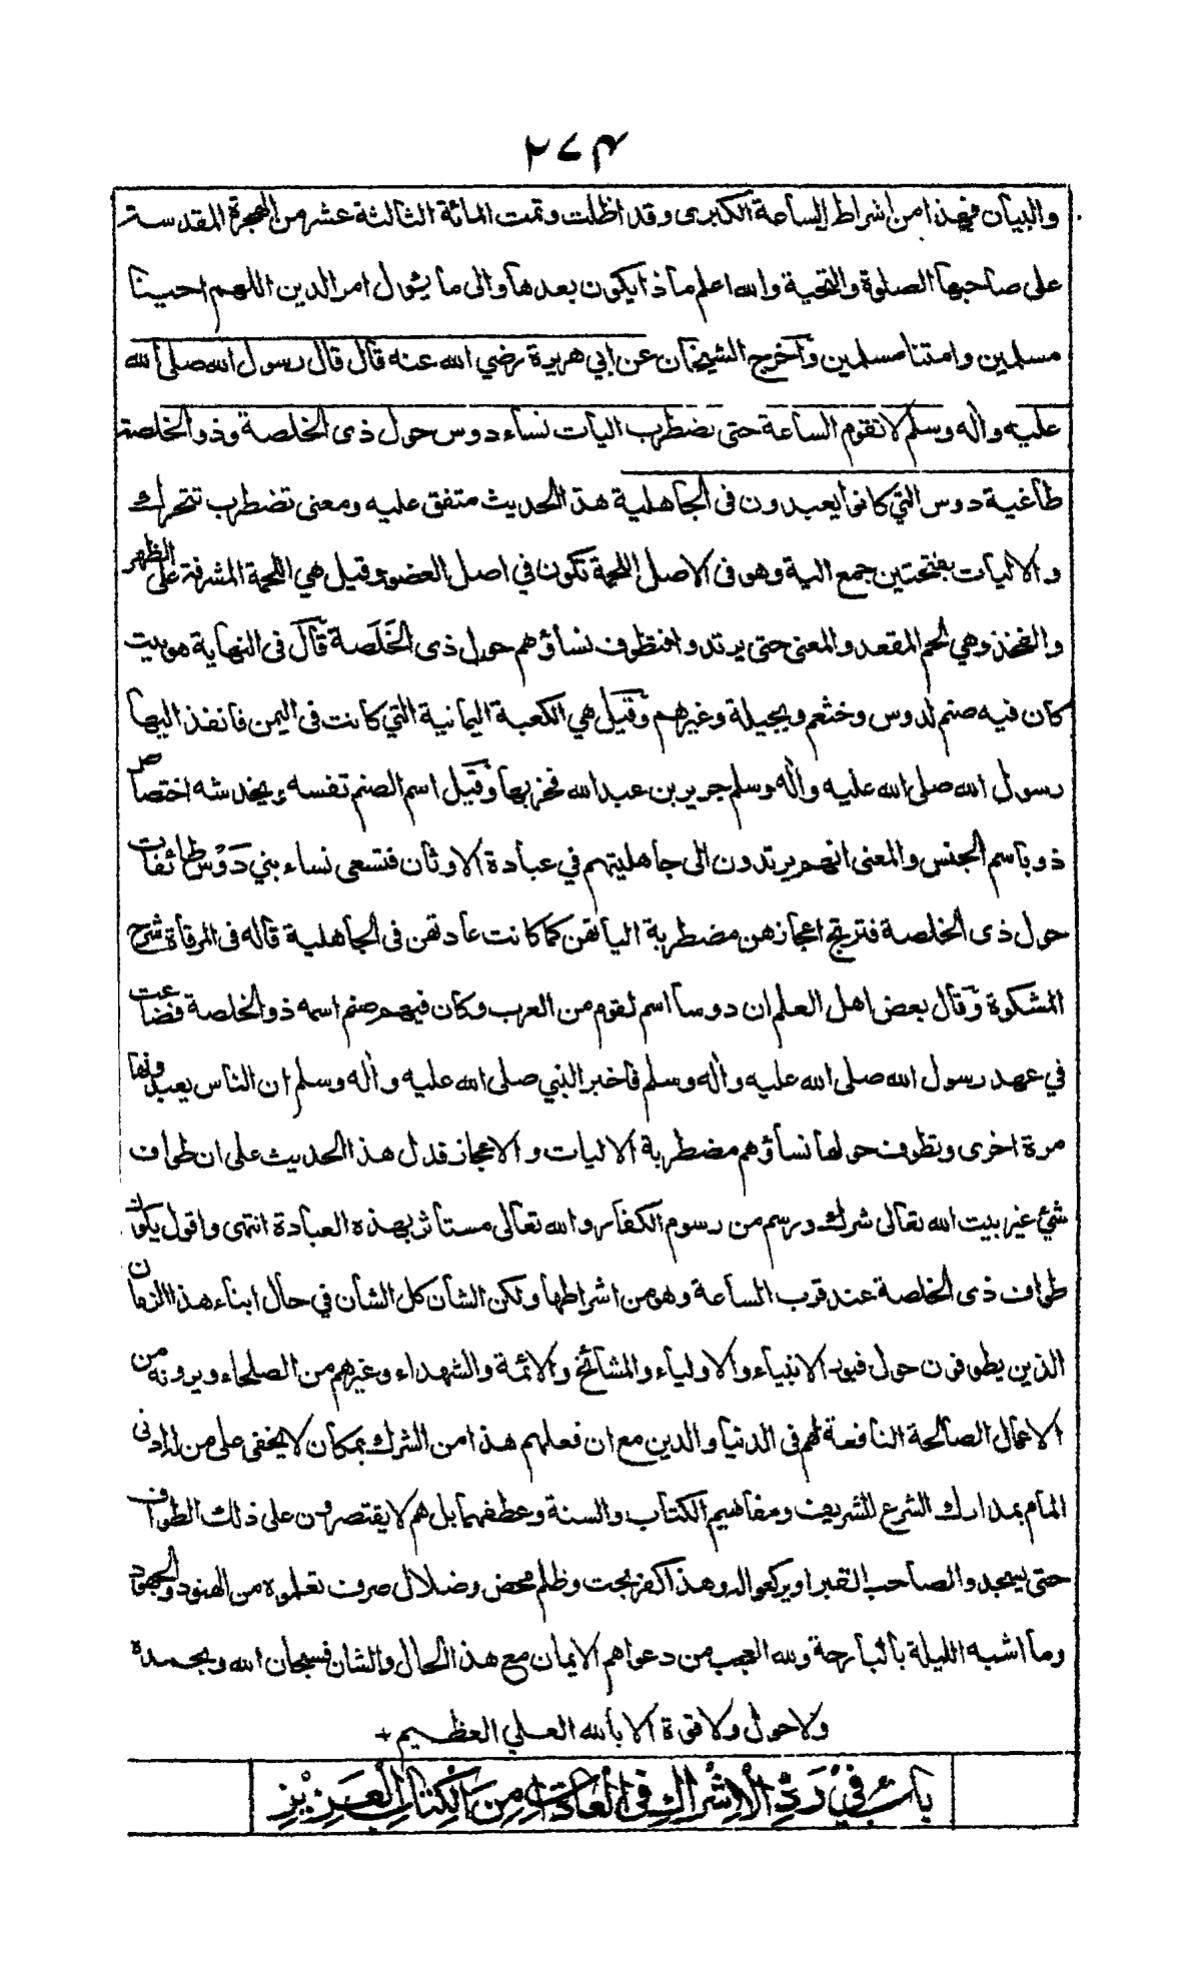 ٢٧٤
والبيان فهذا من اشراط الساعة الكبرى وقد اظلت وتمت المائة الثالثة عشر من الهجرة المقدسة
على صاحبها الصلوة والتحية والله اعلم ماذا يكون بعدها والى ما يئول امر الدين اللهم احينا
مسلمين وامتنا مسلمين وآخرج الشيخان عن ابي هريرة رضي الله عنه قال قال رسول الله صلى الله
عليه واله وسلم لا تقوم الساعة حتى تضطرب اليات نساء دوس حول ذى الخلصة وذو الخلصة
طاغية دوس التي كانوا يعبدون فى الجاهلية هذا الحديث متفق عليه ومعنى تضطرب تتحرك
والاليات بفتحتين جمع الية وهو فى الاصل اللحمة تكون في اصل العضو وقيل هي اللحمة المشرفة على الظهر
والفخذ وهي لحم المقعد والمعنى حتى يرتدوا فتطوف نساؤهم حول ذى الخَلَصة قال فى النهاية هو بيت
كان فيه صنم لدوس وخثعم وبجيلة وغيرهم وقيل هي الكعبة اليمانية التي كانت فى اليمن فانفذ اليها
رسول الله صلى الله عليه واٰله وسلم جرير بن عبد الله فخربها وقيل اسم الصنم نفسه ويخدشه اختصاص
ذو باسم الجنس والمعنى انهم يرتدون الى جاهليتهم في عبادة الاوثان فتسعى نساء بني دَوْس طائفات
حول ذى الخلصة فترتج اعجازهن مضطربة الياتهن كما كانت عادتهن فى الجاهلية قاله فى المرقاة شرح
المشكوة وقال بعض اهل العلم ان دوسا اسم لقوم من العرب وكان فيهم صنم اسمه ذو الخلصة فضاعت
في عهد رسول الله صلى الله عليه واٰله وسلم فاخبر النبي صلى الله عليه واٰله وسلم ان الناس يعبدونها
مرة اخرى وتطوف حولها نساؤهم مضطربة الاليات والاعجاز فدل هذا الحديث على ان طواف
شئ غير بيت الله تعالى شرك ورسم من رسوم الكفار والله تعالى مستأثر بهذه العبادة انتهى واقول يكون
طواف ذى الخلصة عند قرب الساعة وهو من اشراطها ولكن الشأن كل الشأن في حال ابناء هذا الزمان
الذين يطوفون حول قبور الانبياء والاولياء والمشائخ والائمة والشهداء وغيرهم من الصلحاء ويرونه من
الاعمال الصالحة النافعة لهم فى الدنيا والدين مع ان فعلهم هذا من الشرك بمكان لا يخفى على من له ادنى
المام بمدارك الشرع الشريف ومفاهيم الكتاب والسنة وعطفهما بل هم لا يقتصرون على ذلك الطواف
حتى يسجدوا لصاحب القبر او يركعوا له وهذا كفر بحت وظلم محض وضلال صرف تعلموه من الهنود واليهود
وما اشبه الليلة بالبارحة ولله العجب من دعواهم الايمان مع هذا الحال والشان فسبحان الله وبحمده
ولا حول ولا قوة الا بالله العلي العظيم +
بابٌ في رَدِّ الْاِشْرَاكِ فى الْعَادَاتِ مِنَ الْكِتَابِ الْعَزِيْزِ